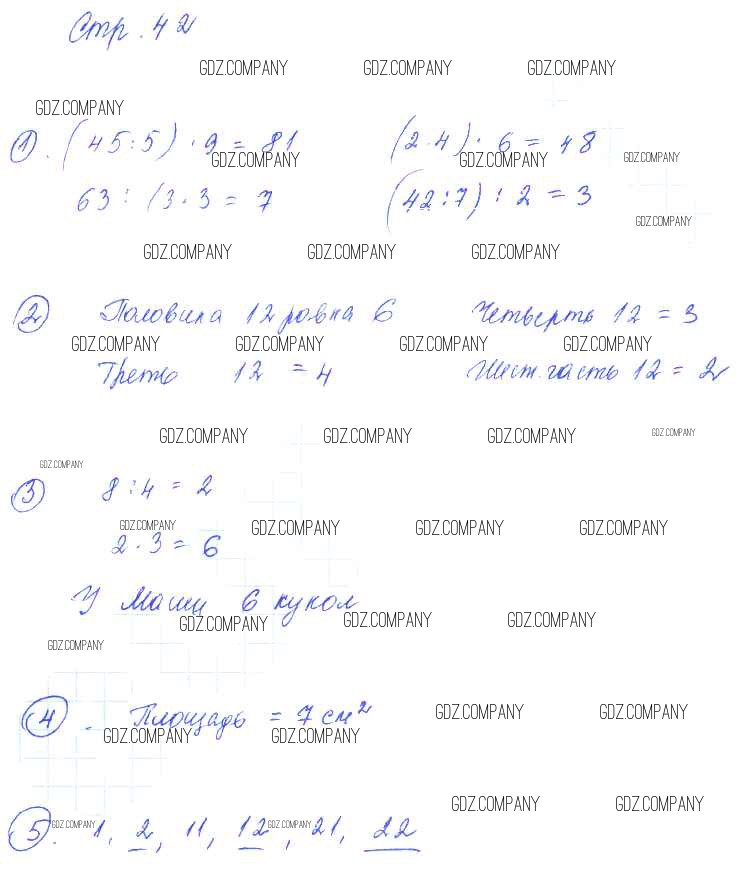 Стр. 42
GDZ.COMPANY GDZ.COMPANY GDZ.COMPANY
GDZ.COMPANY
1. (45:5) · 9 = 81 (2·4) · 6 = 48
GDZ.COMPANY GDZ.COMPANY GDZ.COMPANY
63 : (3·3 = 7 (42:7) : 2 = 3
GDZ.COMPANY
GDZ.COMPANY GDZ.COMPANY GDZ.COMPANY
2 Половина 12 ровна 6 Четверть 12 = 3
GDZ.COMPANY GDZ.COMPANY GDZ.COMPANY GDZ.COMPANY
Треть 12 = 4 Шест. часть 12 = 2
GDZ.COMPANY GDZ.COMPANY GDZ.COMPANY GDZ.COMPANY
GDZ.COMPANY
3 8:4 = 2
GDZ.COMPANY GDZ.COMPANY GDZ.COMPANY GDZ.COMPANY
2·3 = 6
У Маши 6 кукол
GDZ.COMPANY GDZ.COMPANY GDZ.COMPANY
GDZ.COMPANY
4. Площадь = 7 см²
GDZ.COMPANY GDZ.COMPANY
GDZ.COMPANY GDZ.COMPANY
GDZ.COMPANY GDZ.COMPANY
5. 1, 2, 11, 12, 21, 22
GDZ.COMPANY GDZ.COMPANY